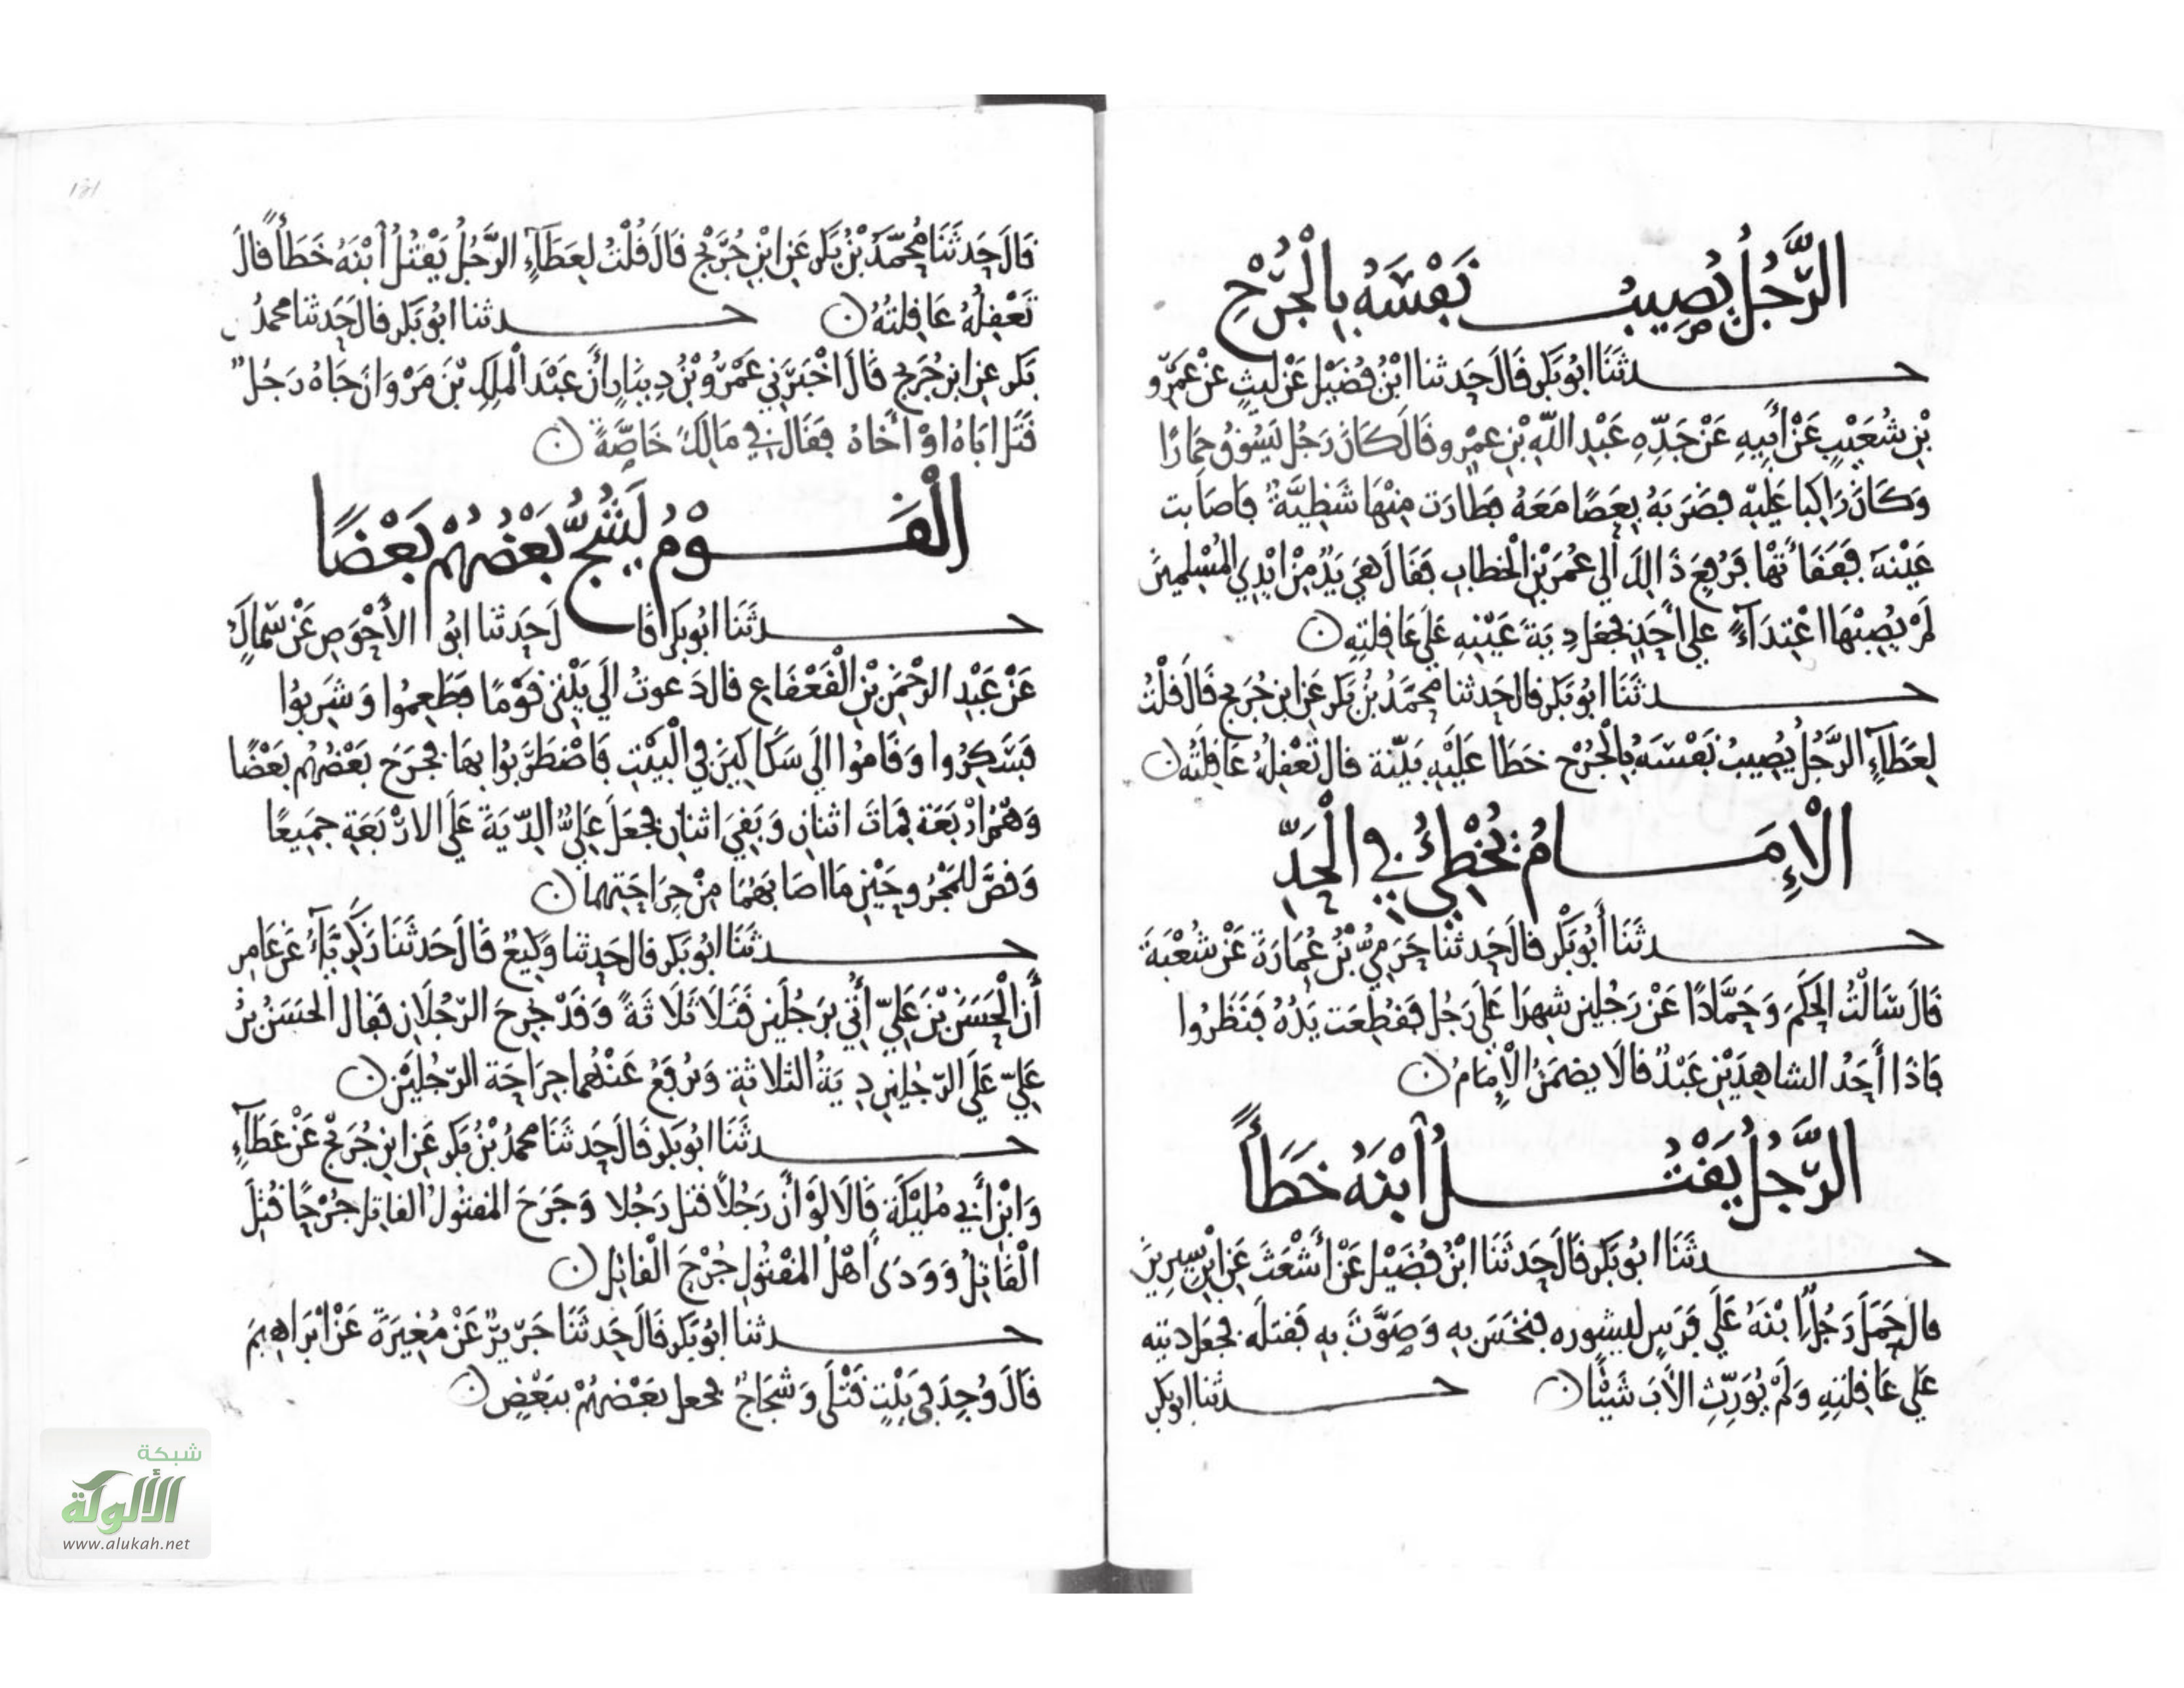 الرَّجُلُ يُصِيبُ نَفْسَهُ بِالْجُرْحِ
حدثَنَا ابُو بَكر قَالَ حَدثنا ابْنُ فُضَيْل عَنْ ليثٍ عَنْ عَمْرو
بْنِ شُعَيْبٍ عَنْ أَبِيهِ عَنْ جَدِّهِ عَبْدِ اللَّهِ بْنِ عمْرو قَالَ كَانَ رَجُل يَسُوقُ حِمَارًا
وَكَانَ رَاكِبا عَلَيْهِ فَضَرَبَهُ بِعَصًا مَعَهُ فَطَارَت مِنْهَا شَظِيَّةٌ فَاصَابت
عَيْنهَ فَفَقَأَتْهَا فَرُفِعَ ذَالِكَ الي عُمَرَ بْنِ الْخطابِ فَقَالَ هيَ يَدٌ مِنْ ايْدِي المُسْلِمينَ
لَمْ يُصِبْهَا اعْتِدَآءٌ عَلي أَحَدٍ فجعَل دِيَةَ عَيْنِهِ عَلَي عَاقِلتِهِ ن
حدثَنَا ابُو بَكر قال حَدثنا محمَّدُ بْنُ بَكر عَنِ ابنِ جُرَيج قَالَ قلْتُ
لِعَطَآءٍ الرَّجُلُ يُصِيبُ نَفْسَهُ بِالْجُرْحِ خطَأ عَلَيْهِ بَيّنة قال تَعْقِلُهُ عَاقِلَتُه ن
الْإِمَامُ يُخْطِئُ فِي الْحَدِّ
حدثَنَا أَبُو بَكْر قالَ حَدثنَا حَرَمِيُّ بْنُ عُمَارَةَ عَنْ شُعْبَةَ
قَالَ سَالْتُ الحَكَمَ وَحَمَّادًا عَنْ رَجُلين شهِدَا عَلَى رَجُل فَقُطِعَت يَدُهُ فَنَظَرُوا
فَاذَا أَحَدُ الشاهِدَيْنِ عَبْدٌ قالَا يضمَنُ الْإِمَامُ ن
الرَّجُلُ يَقْتُلُ ابْنَهُ خَطَأً
حدثَنَا ابُو بَكر قَالَ حَدثَنَا ابْنُ فُضَيْل عَنْ أَشْعَثَ عَنِ ابْنِ سِيرِينَ
قال حَمَلَ رَجُلٌ ابْنَهُ عَلَي فَرَسٍ ليشوره فنخَسَ بِهِ وَصَوَّتَ بِهِ فَقتلَه فجعَل دِيته
عَلي عَاقِلتِهِ وَلَمْ يُوَرِّثِ الأَبَ شَيْئًا ن حدثنا ابو بكر
قَالَ حَدثَنَا مُحَمَّدُ بْنُ بَكر عَنِ ابْنِ جُرَيْج قَالَ قُلْتُ لِعَطَآءٍ الرَّجُلُ يَقْتُلُ ابْنَهُ خَطَأً قالَ
تَعْقِلُهُ عَاقِلتُهُ ن حدثنا ابُو بَكر قال حَدثنا محمدُ بن
بَكر عنِ ابنِ جُرَيج قَالَ اخْبَرَنِي عَمْرُو بْنُ دِينَارٍ أَنَّ عَبْدَ الْملِكِ بْنَ مَرْوَانَ جَاهُ رَجُلٌ
قَتَلَ ابَاهُ اوْ أَخَاهُ فقَالَ فِي مَالِكَ خَاصَّةً ن
الْقَوْمُ يَشُجُّ بَعْضُهُمْ بَعْضًا
حدثَنَا ابُو بَكر قَالَ حَدثنا ابُو الأَحْوَصِ عَنْ سِمَاكٍ
عَنْ عَبْدِ الرحْمَنِ بْنِ الْقَعْقَاعِ قالَ دَعوتُ الَى بَيْتِي قَوْمًا فَطَعِمُوا وَشَرِبُوا
فَسَكِرُوا وَقَامُوا الَي سَكَاكِينَ فِي الْبَيْتِ فَاضْطَرَبُوا بِهَا فجَرَحَ بَعْضُهُم بَعْضًا
وَهُمْ ارْبَعَة فمَاتَ اثنانِ وَبَقِيَ اثنانِ فجَعَلَ عَلِيٌّ الدِّيَةَ عَلَى الارْبَعَةِ جَمِيعًا
وَقصَّ للْمَجْرُوحَيْنِ مَا اصَابَهُمَا مِنْ جِرَاحَتِهِمَا ن
حدثَنَا ابُو بَكر قال حَدثنا وَكِيعٌ قَالَ حَدثَنَا زَكَرِيَّآءُ عَنْ عَامِر
أَنَّ الْحَسَنَ بْنَ عَلِيّ أُتِيَ بِرَجُلَين قَتَلَا ثَلَاثَةً وَقَدْ جُرِحَ الرّجُلَانِ فَقال الحَسَنُ بْنُ
عَلِيّ عَلَى الرّجُلينِ دِيَةُ الثلاثةِ وَيُرْفَعُ عَنْهُمَا جِرَاحَة الرّجُلَيْنِ ن
حدثَنَا ابُو بَكر قَالَ حَدثَنَا محمدُ بْنُ بَكر عَنِ ابنِ جُرَيْج عَنْ عَطَآءٍ
وَابْنِ أَبِي مُلَيْكَةَ قَالَا لَوْ أَنَّ رَجُلاً قتل رَجُلا وَجَرَحَ المقتولُ القاتِل جُرْحًا قُتِلَ
الْقَاتِلُ وَوَدَى أَهْلُ المَقْتُولِ جُرْحَ الْقاتِل ن
حدثنا ابُو بَكر قَالَ حَدثَنَا جَريرٌ عَنْ مُغِيرَةَ عَنْ ابْرَاهِيمَ
قَالَ وُجِدَ فِي بَيْتٍ قَتْلَى وَشجَاجٌ فجعل بَعْضهُمْ ببَعْضٍ ن
شبكة
الألوكة
www.alukah.net